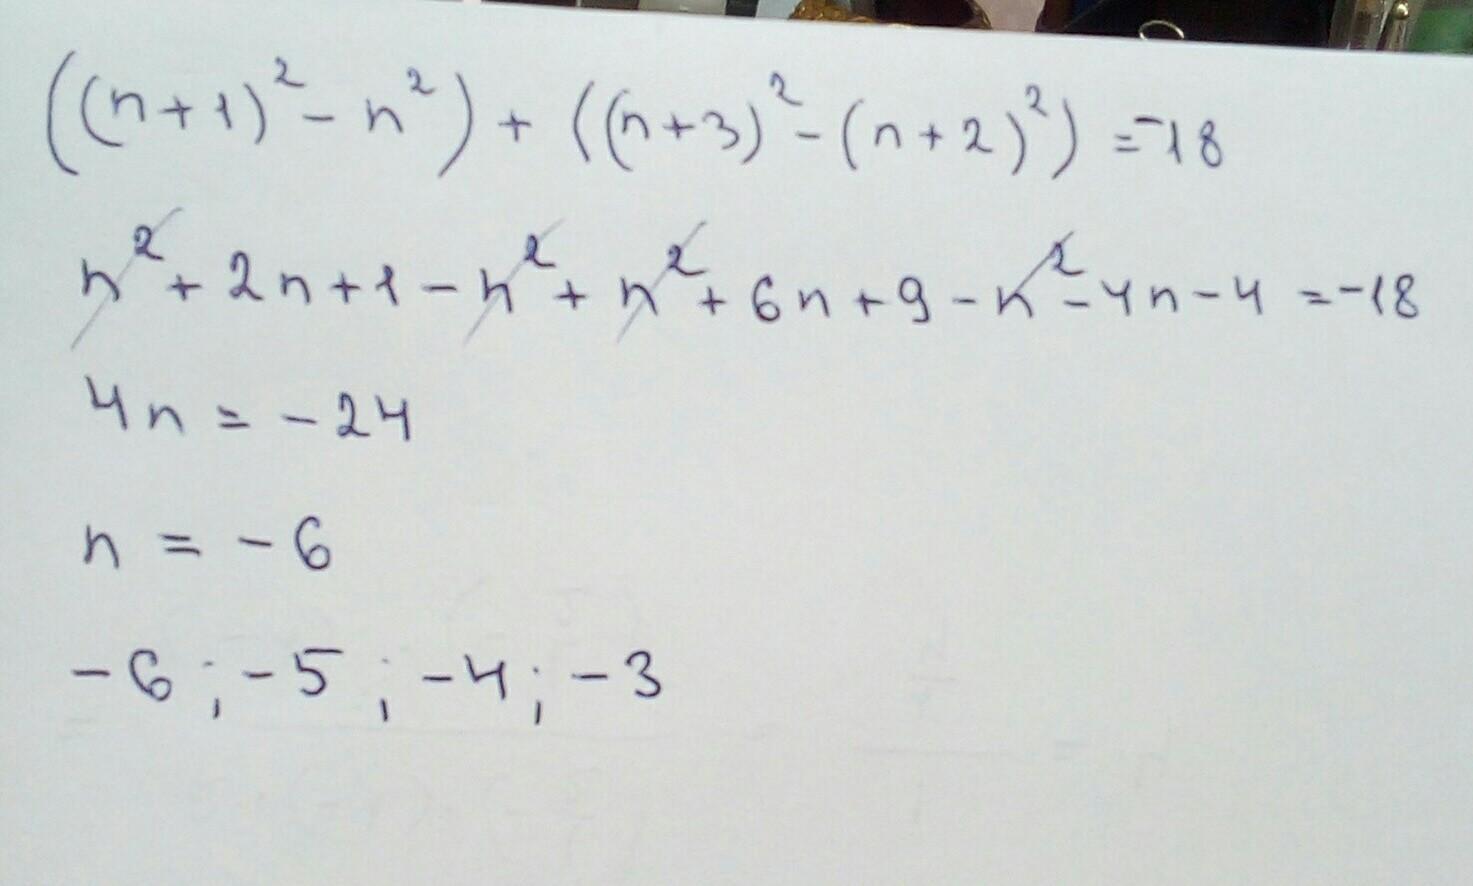 ((n+1)²-n²)+((n+3)²-(n+2)²)=-18
n²+2n+1-n²+n²+6n+9-n²-4n-4=-18
4n=-24
n=-6
-6;-5;-4;-3